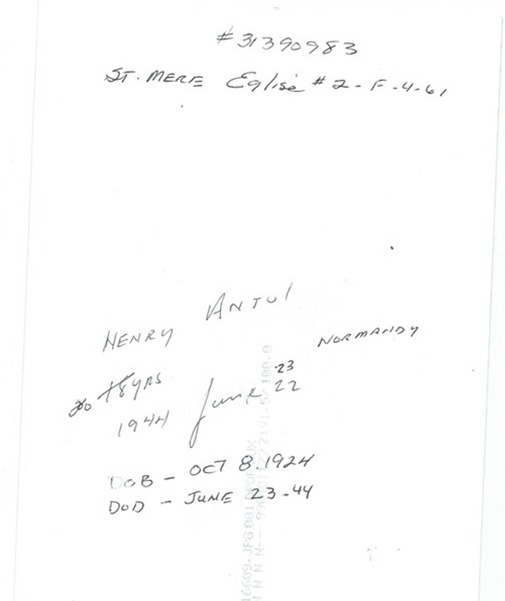 #31390983
ST. MERE Eglise #2-F-4-61
ANTUL
HENRY
NORMANDY
20 18 YRS
23
1944 June 22
DOB - OCT 8.1924
DOD - JUNE 23-44